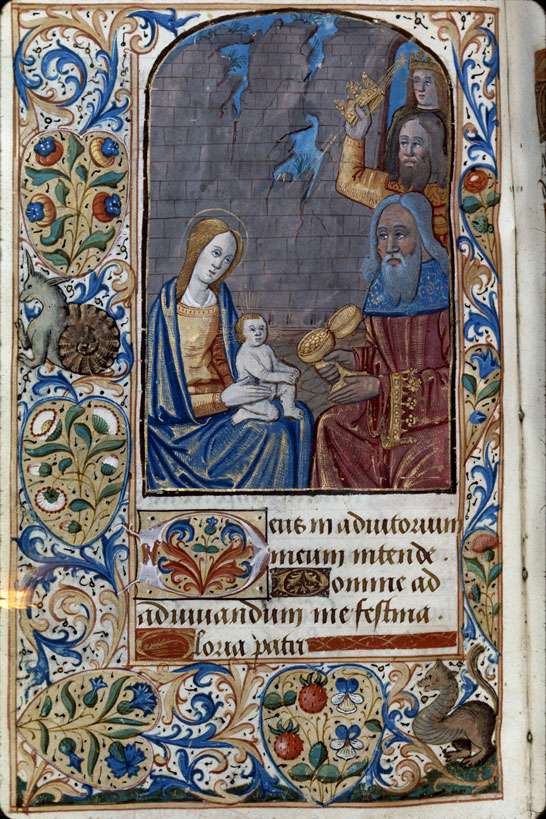 Deus in adiutorium
meum intende.
Domine ad
adiuuandum me festina.
Gloria patri